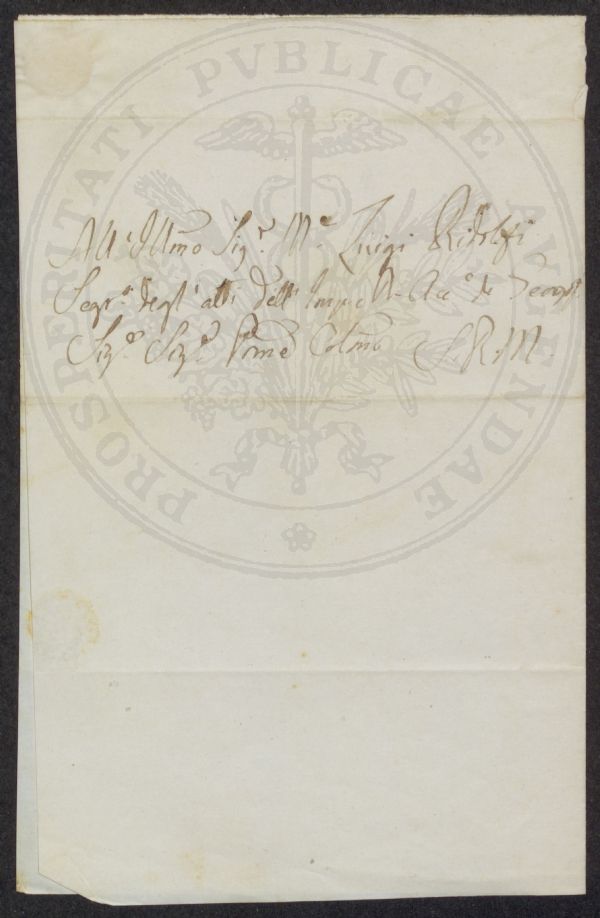 PROSPERITATI PVBLICAE AVGENDAE
All'Illmo Sigr. Me. Luigi Ridolfi
Segro. degl'atti dell' Impe R. Acco. de
Sigre. Sigre. Prne Colmo S. R. M.